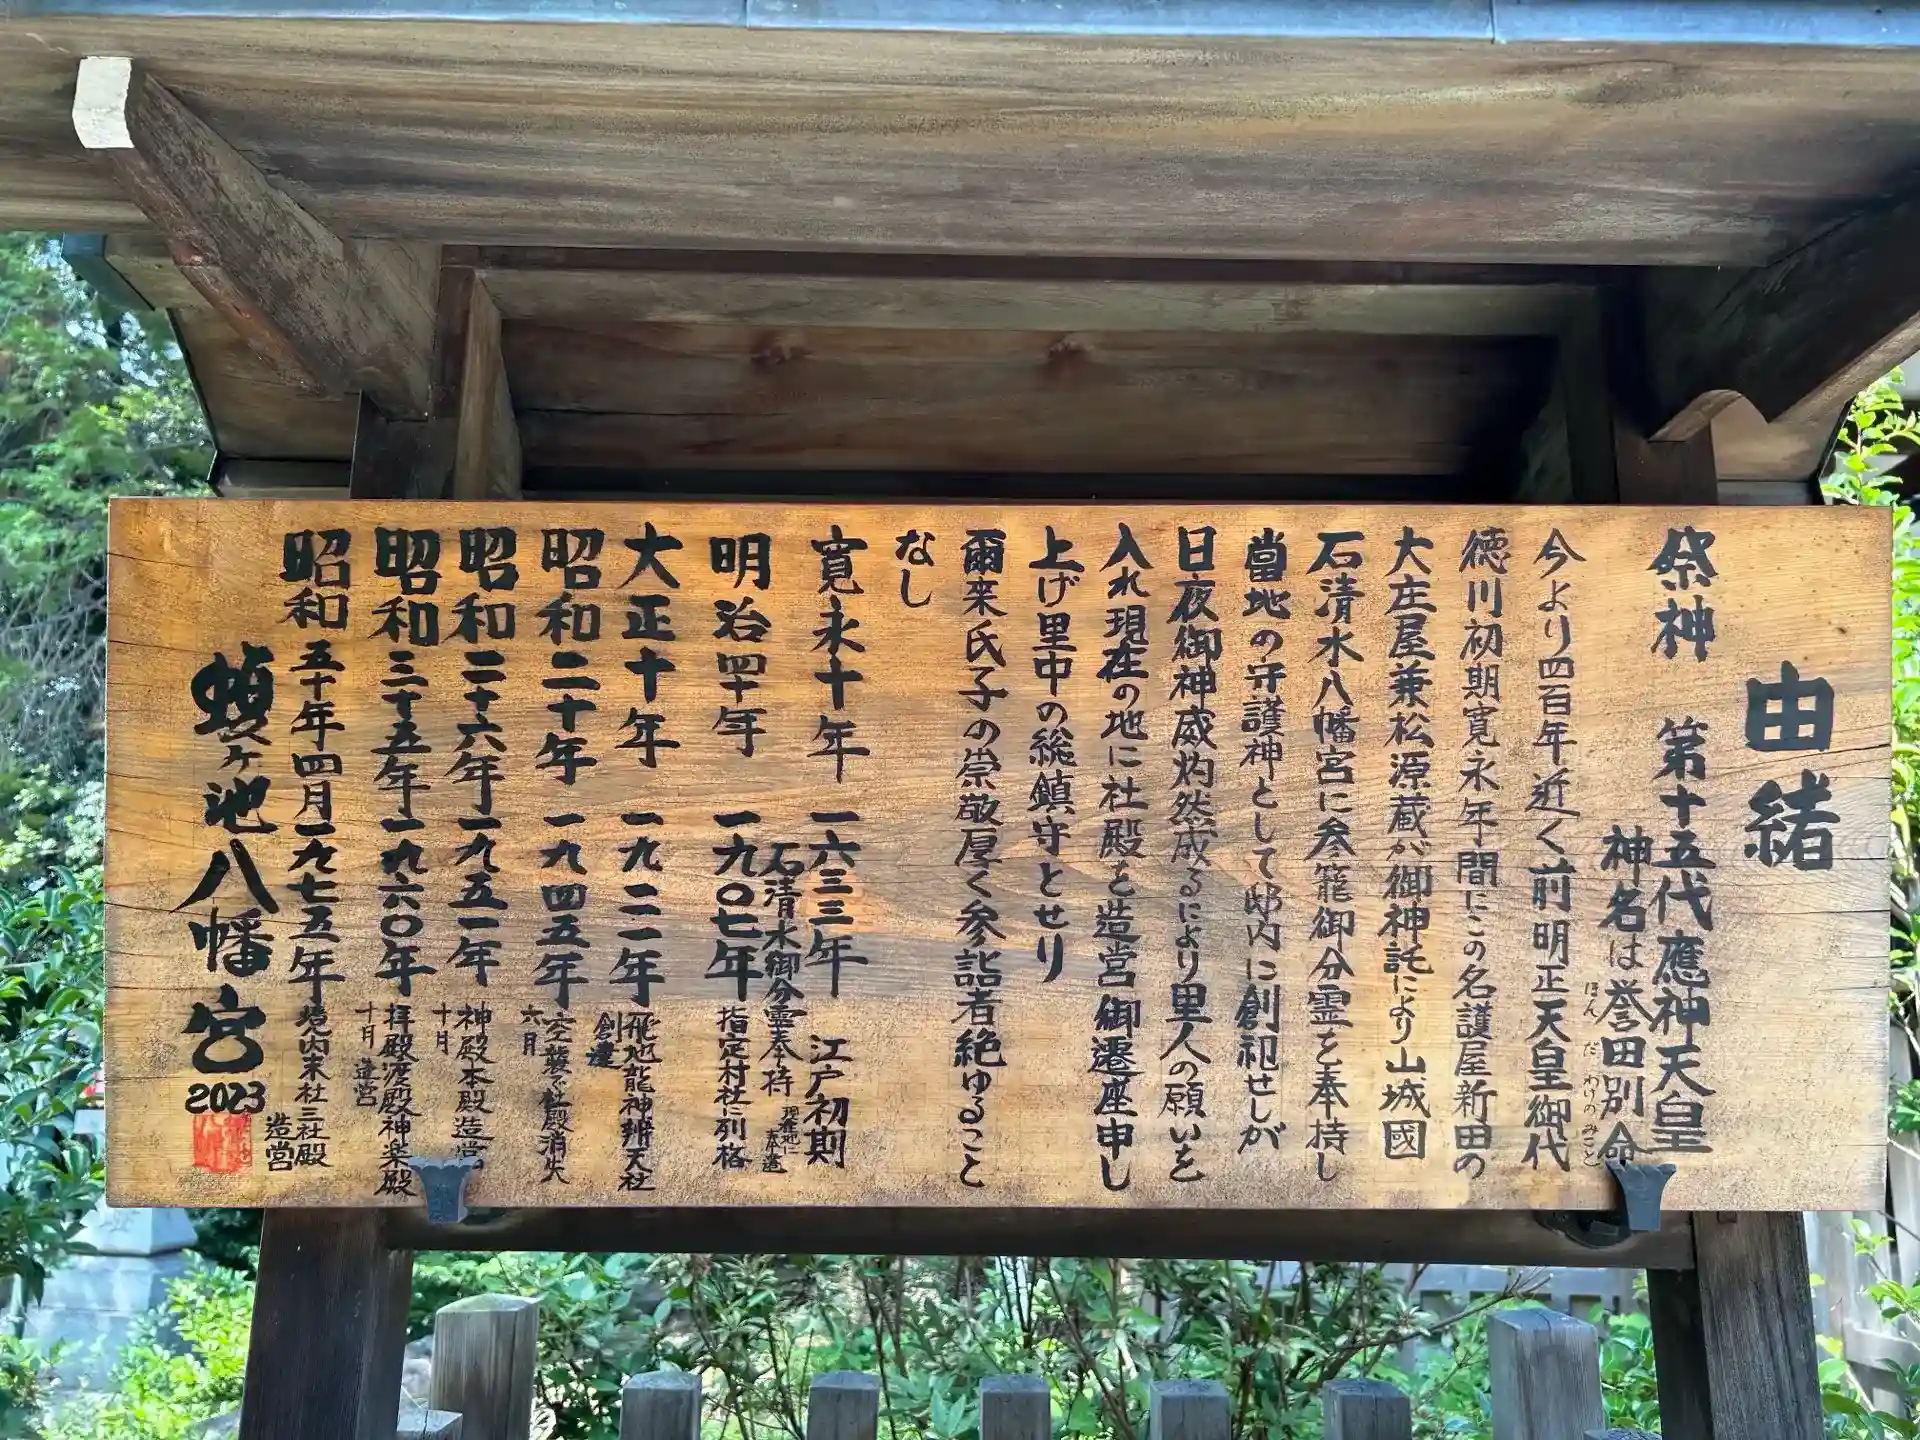 由緒
祭神 第十五代應神天皇
神名は誉田別命
ほん だ わけのみこと
今より四百年近く前明正天皇御代
徳川初期寛永年間にこの名護屋新田の
大庄屋兼松源蔵が御神託により山城國
石清水八幡宮に参籠御分霊を奉持し
當地の守護神として邸内に創祀せしが
日夜御神威灼然成るにより里人の願いを
入れ現在の地に社殿を造営御遷座申し
上げ里中の総鎮守とせり
爾来氏子の崇敬厚く参詣者絶ゆること
なし
寛永十年 一六三三年 江戸初期
石清水御分霊奉持 現在地に
奉遷
明治四十年 一九〇七年 指定村社に列格
大正十年 一九二一年 飛地龍神辨天社
創建
昭和二十年 一九四五年 空襲で社殿消失
六月
昭和二十六年 一九五一年 神殿本殿造営
十月
昭和三十五年 一九六〇年 拝殿渡殿神楽殿
十月 造営
昭和五十年四月 一九七五年 境内末社三社殿
造営
蝮ヶ池八幡宮
2023